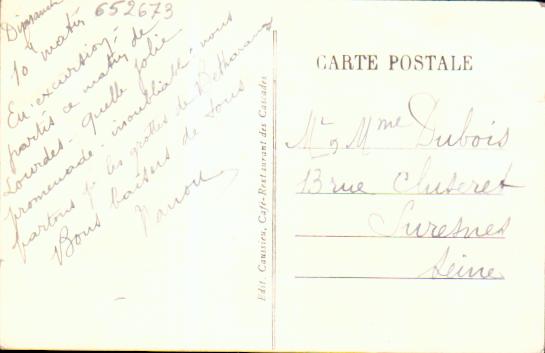 652673
10 matin
En excursion,
partis ce matin de
Lourdes - quelle jolie
promenade - inoubliable - nous
partons pr les grottes de Betharam
Bons baisers de tous
CARTE POSTALE
Mr & Mme Dubois
13 rue Cluseret
Suresnes
Seine
Edit. Caussieu, Café-Restaurant des Cascades